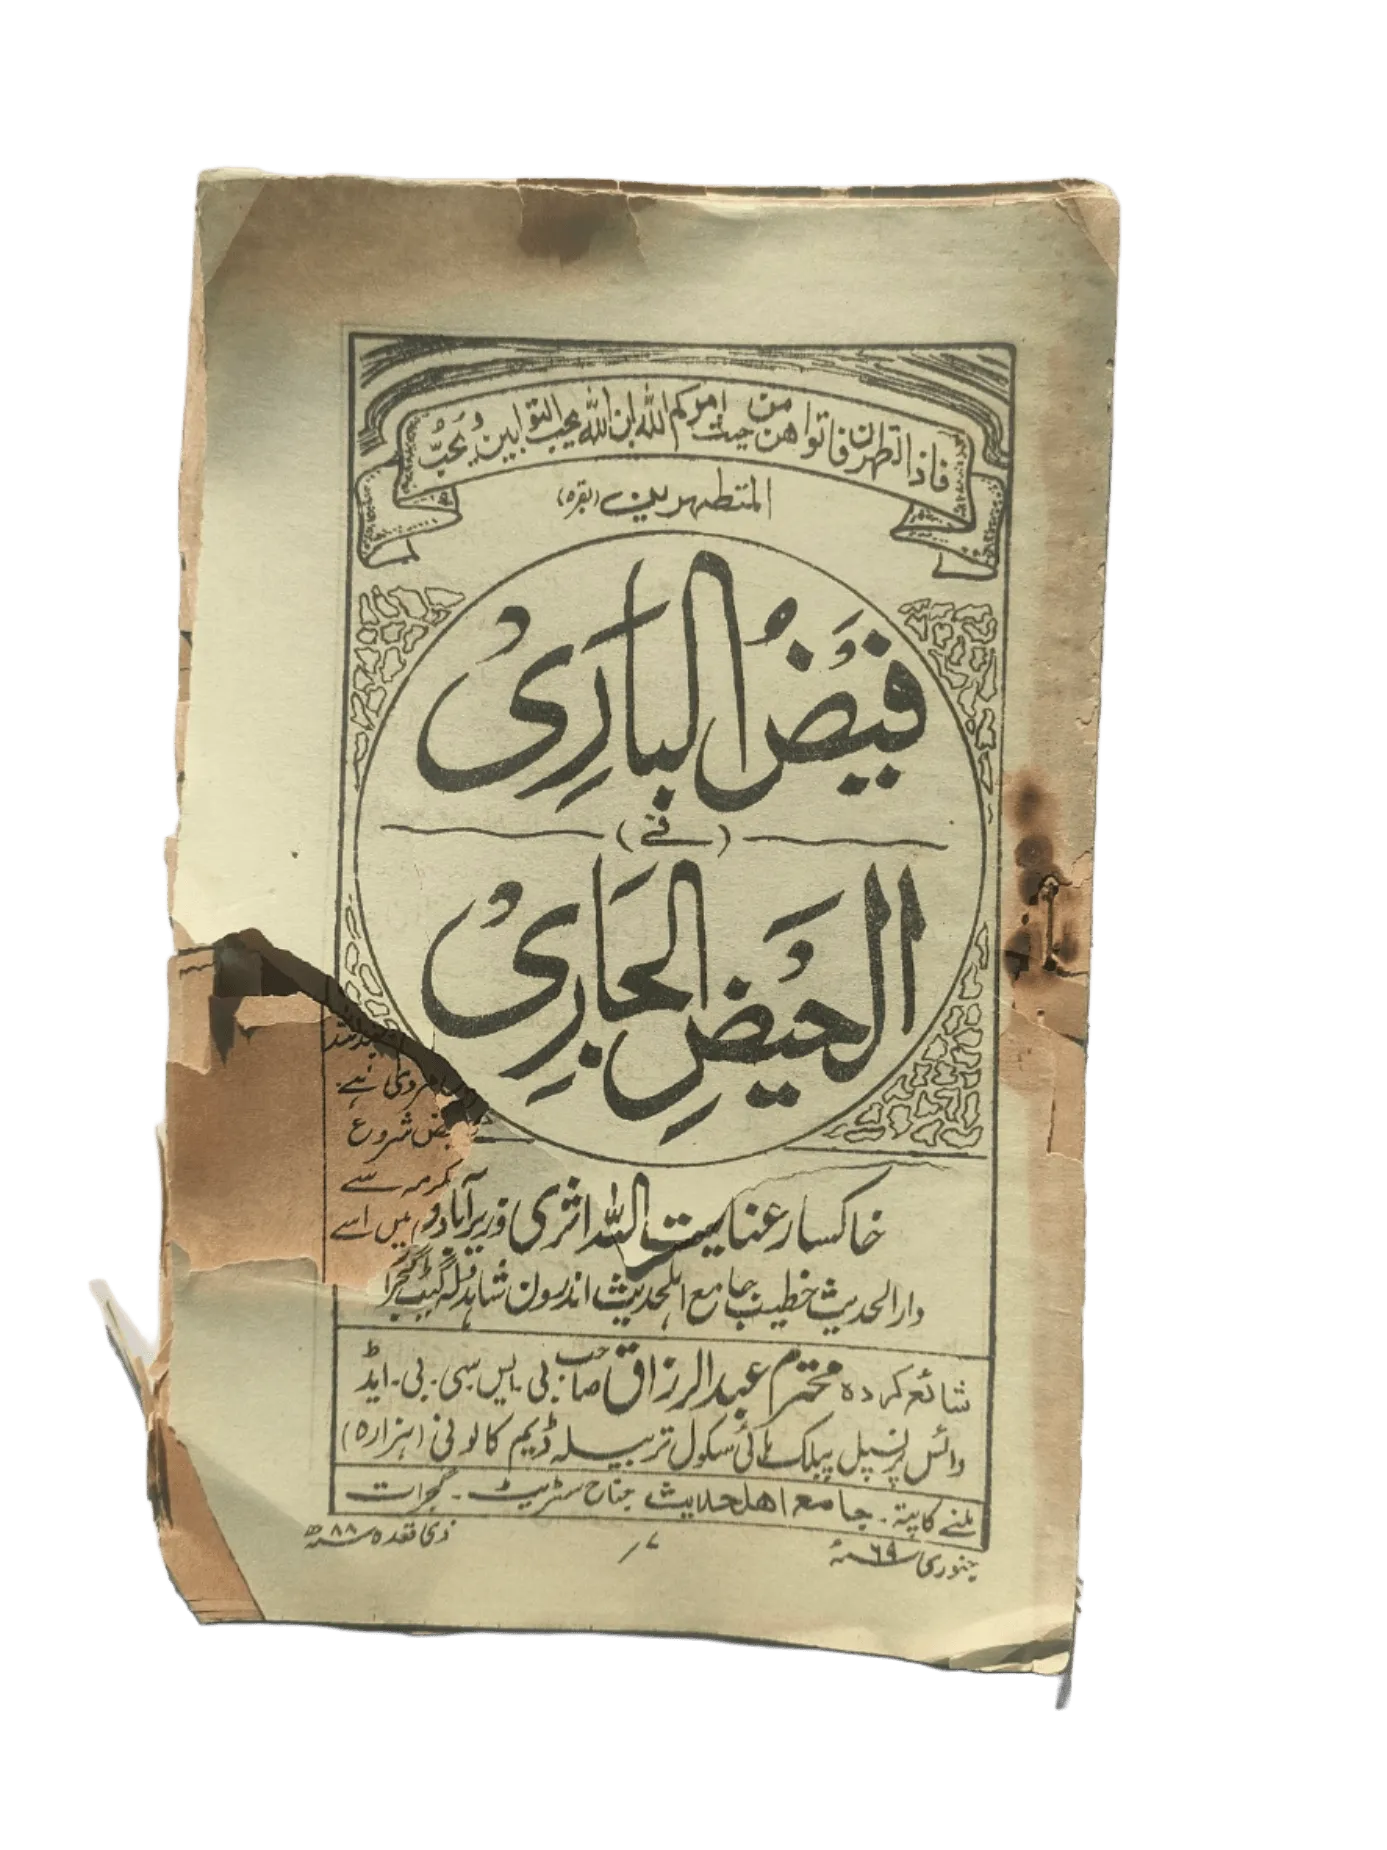 فاذا تطهرن فاتوا هن من حيث امركم الله ان الله يحب التوابين و يحبُّ
المتطهرين (بقره)
فَيَضُ البَارِىْ
(فے)
الحَيَضِ الجَارِىْ
ہے۔
شروع
سے
خاکسار عنایت اللہ اثری وزیرآبادی
میں اسے
دارالحدیث خطیب جامع اہلحدیث اندرون شاہدولہ گیٹ گجرات
شائع کردہ محترم عبدالرزاق صاحب بی۔ایس سی۔بی۔ایڈ
وائس پرنسپل پبلک ہائی سکول تربیلہ ڈیم کالونی (ہزارہ)
ملنے کا پتہ۔ جامع اھلحدیث جناح سٹریٹ۔ گجرات
جنوری ۶۹ءسنہ
۷/
ذی قعدہ ۸۸ھسنہ